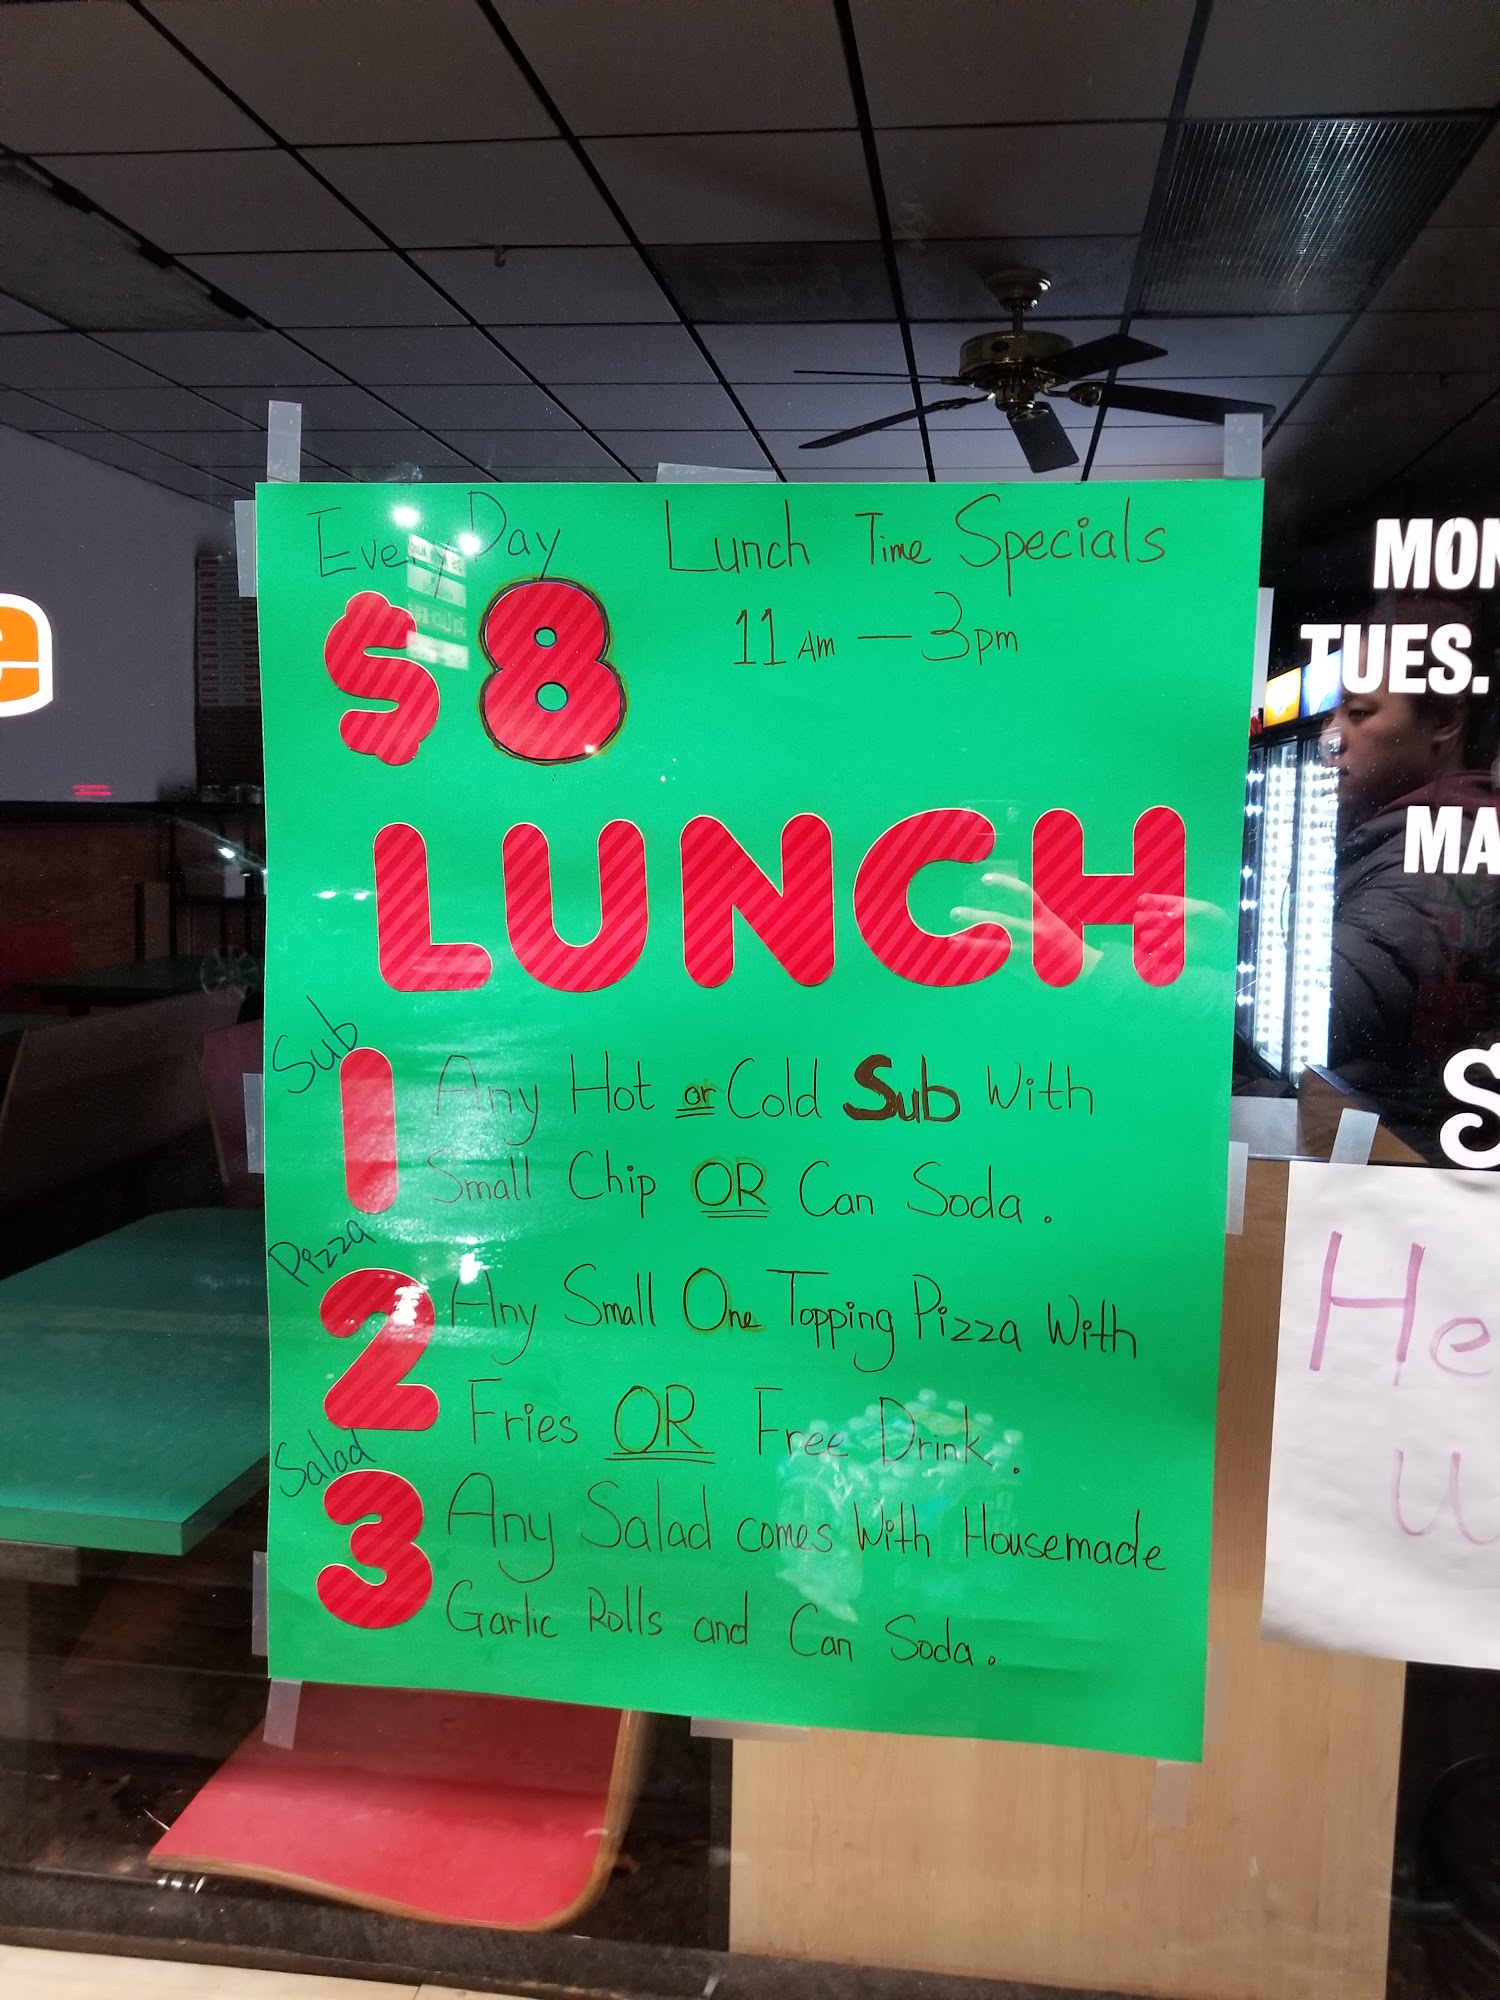 Every Day Lunch Time Specials
$8 11 Am — 3pm
LUNCH
Sub
1 Any Hot or Cold Sub With
Small Chip OR Can Soda.
Pizza
2 Any Small One Topping Pizza With
Fries OR Free Drink.
Salad
3 Any Salad comes With Housemade
Garlic Rolls and Can Soda.
MON
TUES.
MA
S
He
W
e